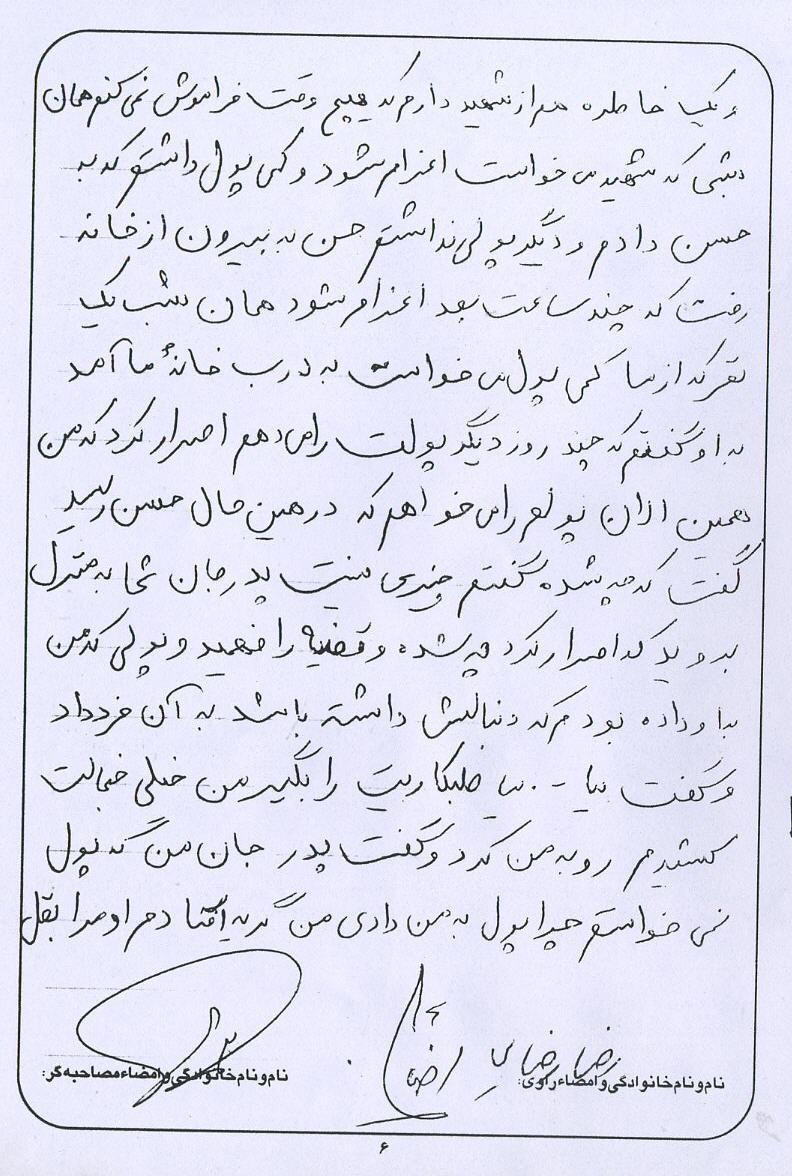 و یک خاطره هم از شهید دارم که هیچ وقت فراموش نمی کنم همان
شبی که شهید می خواست اعزام شود و کمی پول داشتم که به
حسن دادم و دیگر پولی نداشتم حسن به بیرون از خانه
رفت که چند ساعت بعد اعزام شود همان شب یک
نفر که از ما کمی پول می خواست به درب خانهٔ ما آمد
به او گفتم که چند روز دیگر پولت را می دهم اصرار کرد که من
همین الان پولم را می خواهم که در همین حال حسن رسید
گفت که چه شده گفتم چیزی نیست پدر جان شما به منزل
بروید که اصرار کرد چه شده و قضیه را فهمید و پولی که من
به او داده بودم که دنبالش داشته باشد به آن فرد داد
و گفت بیا - بیا طلبکاریت را بگیر من خیلی خجالت
کشیدم رو به من کرد و گفت پدر جان من که پول
نمی خواستم چرا پول به من دادی من گریه افتادم او مرا بقل
رضا رضایی
نام و نام خانوادگی و امضاء راوی:
نام و نام خانوادگی و امضاء مصاحبه گر:
۶